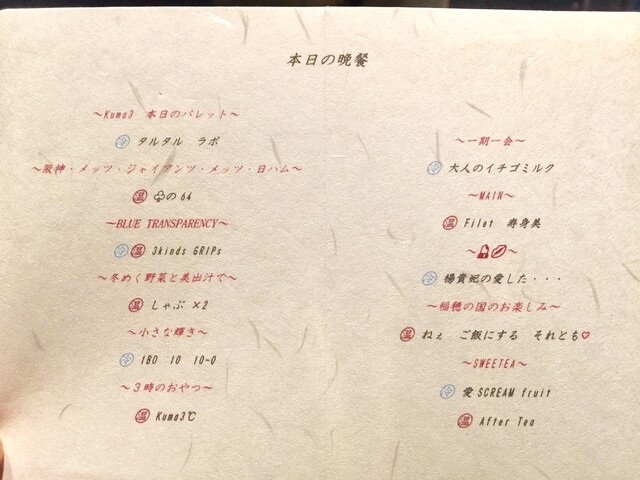 本日の晩餐
～Kuma3　本日のパレット～
冷 タルタル　ラボ
～阪神・メッツ・ジャイアンツ・メッツ・日ハム～
温 ♧の64
～BLUE TRANSPARENCY～
冷 温 3kinds GRIPs
～冬めく野菜と美出汁で～
温 しゃぶ ×2
～小さな輝き～
冷 180　10　10-0
～3時のおやつ～
温 Kuma3℃
～一期一会～
冷 大人のイチゴミルク
～MAIN～
温 Filet　寿身美
冷 楊貴妃の愛した・・・
～稲穂の国のお楽しみ～
温 ねぇ　ご飯にする　それとも♡
～SWEETEA～
冷 愛SCREAM fruit
温 After Tea